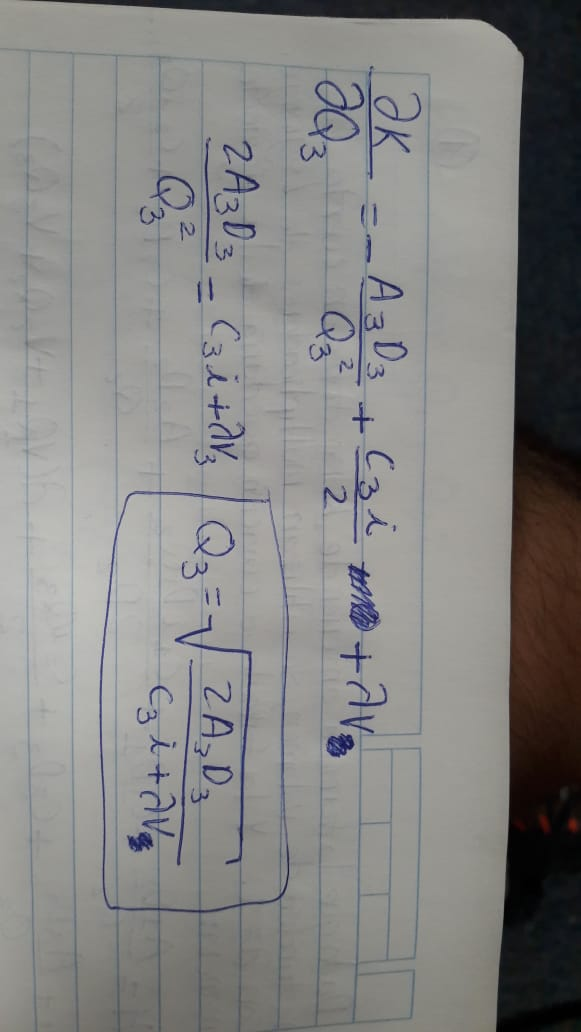 ∂K/∂Q₃ = - A₃D₃/Q₃² + C₃i/2 + λV
2A₃D₃/Q₃² = C₃i + λV₃
Q₃ = √(2A₃D₃/(C₃i + λV))